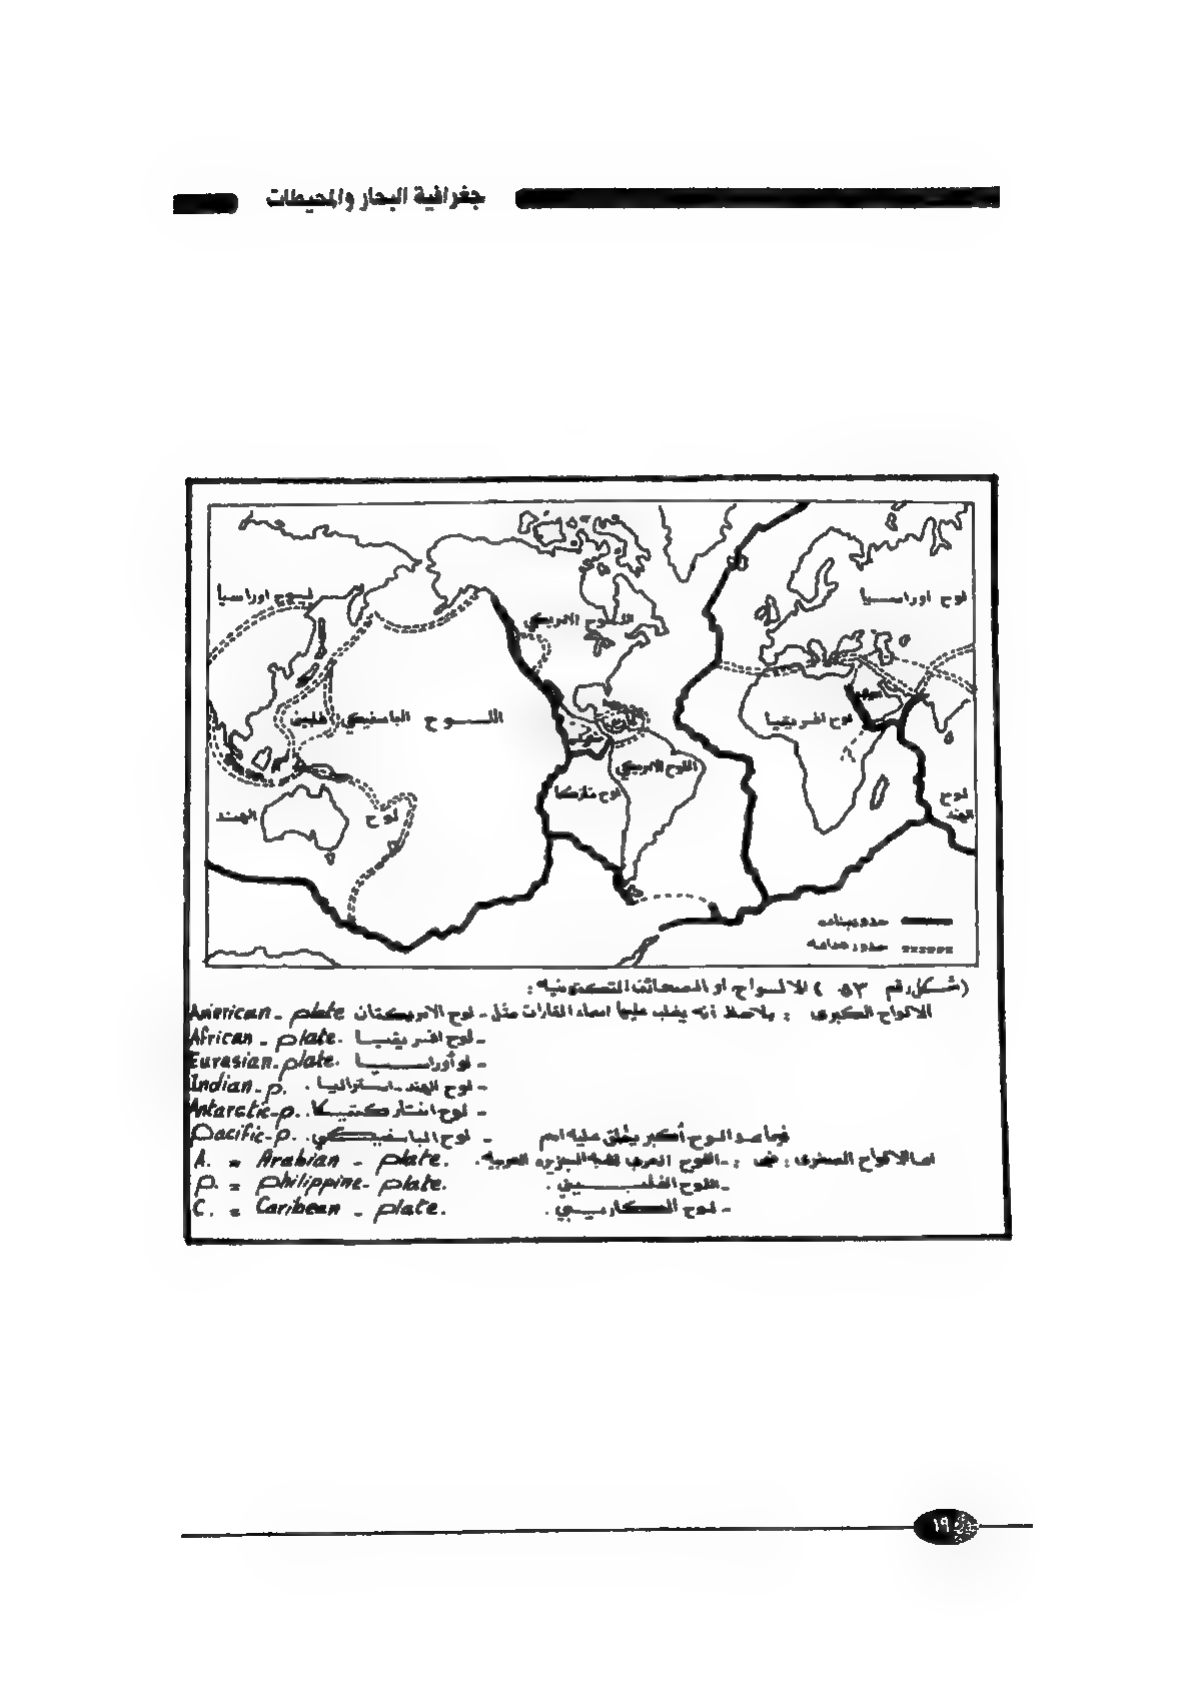 جغرافية البحار والمحيطات
لوح اوراسيا
اللوح الامريكي
لوح اوراسيا
اللوح الباسفيكي
فلبين
لوح افريقيا
اللوح الامريكي
لوح نازكا
لوح
الهند
لوح
الهند
حدود بناءه
حدود هدامه
(شكل رقم ٥٣) الالواح او الصفائح التكتونيه :
الالواح الكبرى : يلاحظ أنه يغلب عليها اسماء القارات مثل - لوح الامريكتان American - plate
- لوح افريقيا African - plate.
- لو أوراسيا Eurasian-plate.
- لوح الهند - استراليا . Indian-p.
- لوح انتاركتيكا . Antarctic-p.
فيما عدا لوح أكبر يطلق عليه اسم - لوح الباسفيكي . Pacific-p.
اما الالواح الصغرى : فهى : - اللوح العربى لشبه الجزيره العربيه . A. = Arabian - plate.
- اللوح الفلبيني . P. = philippine- plate.
- لوح الكاريبي . C. = Caribean - plate.